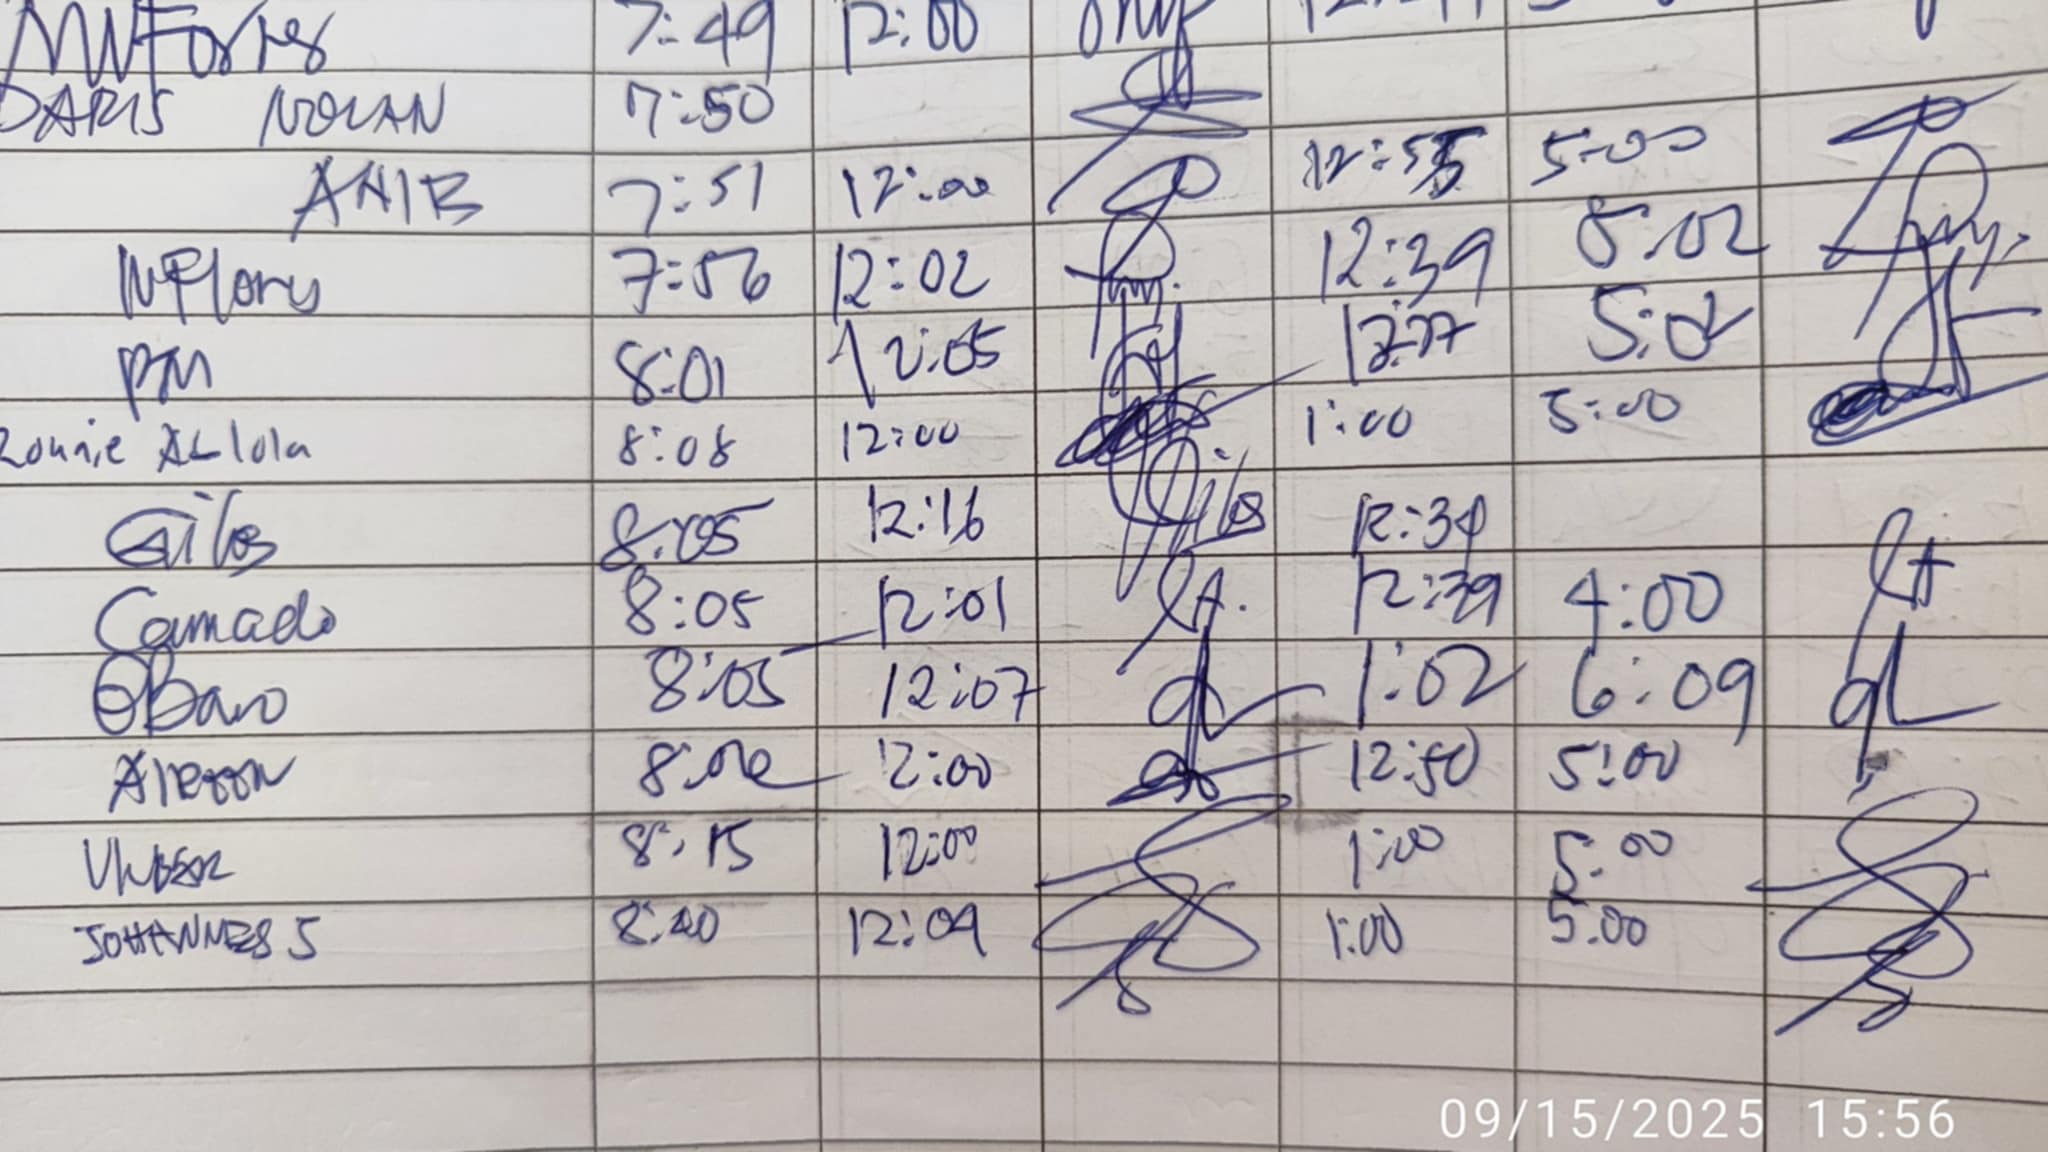 7:49 12:00
DARIS NOLAN 7:50
ANIB 7:51 12:00 12:55 5:00
7:56 12:02 12:39 5:02
PM 8:01 12:05 12:27 5:02
Ronnie ALlola 8:08 12:00 1:00 5:00
Gilos 8:05 12:16 12:34
Camado 8:05 12:01 12:39 4:00
OBano 8:05 12:07 1:02 6:09
12:00 12:50 5:00
8:15 12:00 1:00 5:00
JOHANNES S 12:09 1:00 5:00
09/15/2025 15:56